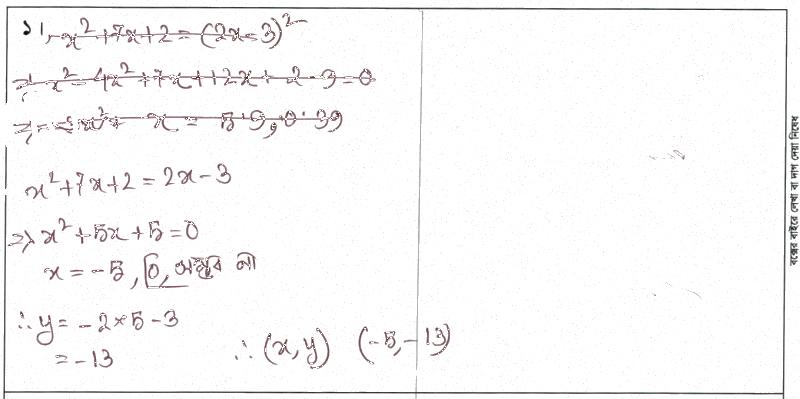 ১।, x²+7x+2=(2x-3)²
⇒ x²-4x²+7x+12x+2-9=0
x²+7x+2=2x-3
⇒ x²+5x+5=0
x=-5, 0, সম্ভব না
∴ y= -2×5-3
=-13
∴ (x,y) (-5,-13)
বক্সের বাইরে লেখা বা দাগ দেয়া নিষেধ